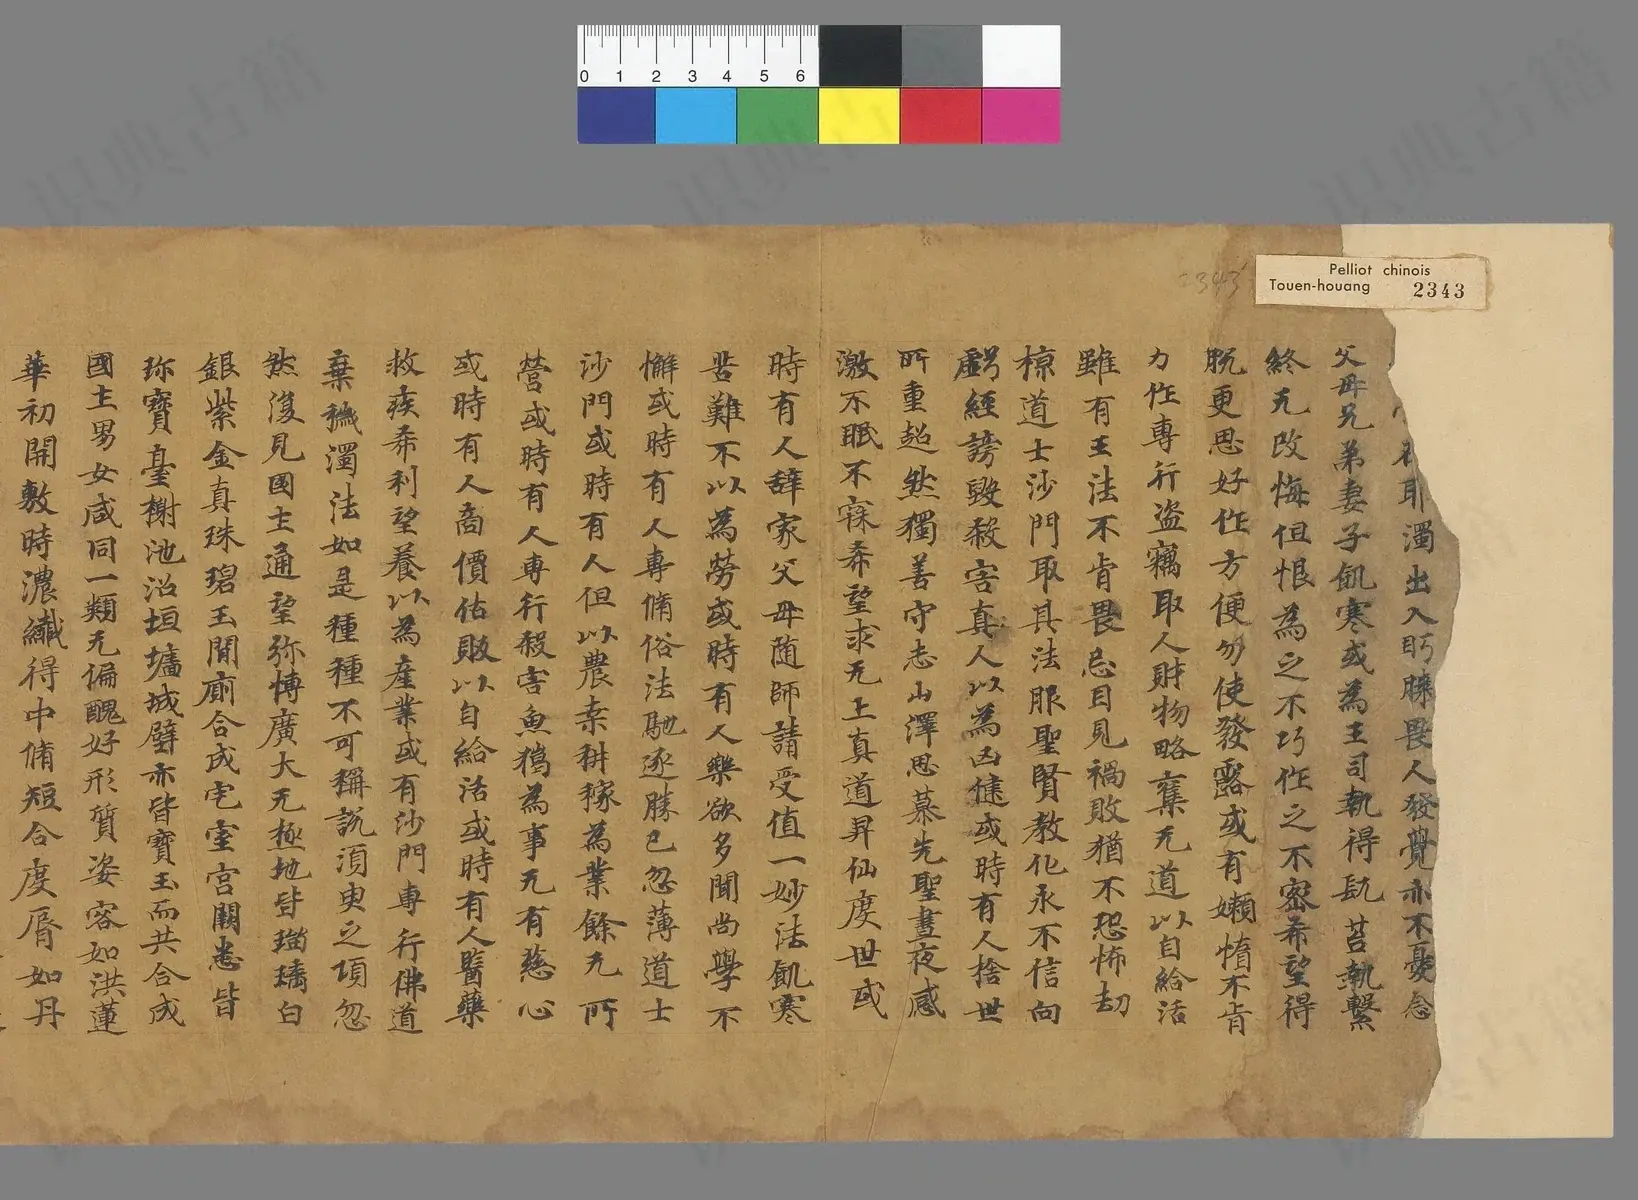 0 1 2 3 4 5 6
Pelliot chinois
Touen-houang 2343
2343
耶濁出入眄睞畏人發覺亦不憂念
父母兄弟妻子飢寒或為王司執得訊苔執繫
終无改悔但恨為之不巧作之不密希望得
脫更思好作方便勿使發露或有嬾惰不肯
力作專行盜竊取人財物略棄无道以自給活
雖有王法不肯畏忌目見禍敗猶不恐怖劫
掠道士沙門取其法服聖賢教化永不信向
虧經謗毀殺害真人以為凶健或時有人捨世
所重超然獨善守志山澤思慕先聖晝夜感
激不眠不寐希望求无上真道昇仙度世或
時有人辭家父母隨師請受值一妙法飢寒
苦難不以為勞或時有人樂欲多聞尚學不
懈或時有人專脩俗法馳逐勝己忽薄道士
沙門或時有人但以農桒耕稼為業餘无所
營或時有人專行殺害魚獵為事无有慈心
或時有人商價估販以自給活或時有人醫藥
救疾希利望養以為產業或有沙門專行佛道
棄穢濁法如是種種不可稱說須臾之頃忽
然後見國土通望弥博廣大无極地皆瑙璚白
銀紫金真珠碧玉閒廁合成宅室宮闕悉皆
珎寶臺榭池沼垣壚城壁亦皆寶玉而共合成
國主男女咸同一類无偏醜好形質姿容如洪蓮
華初開敷時濃纖得中脩短合度脣如丹